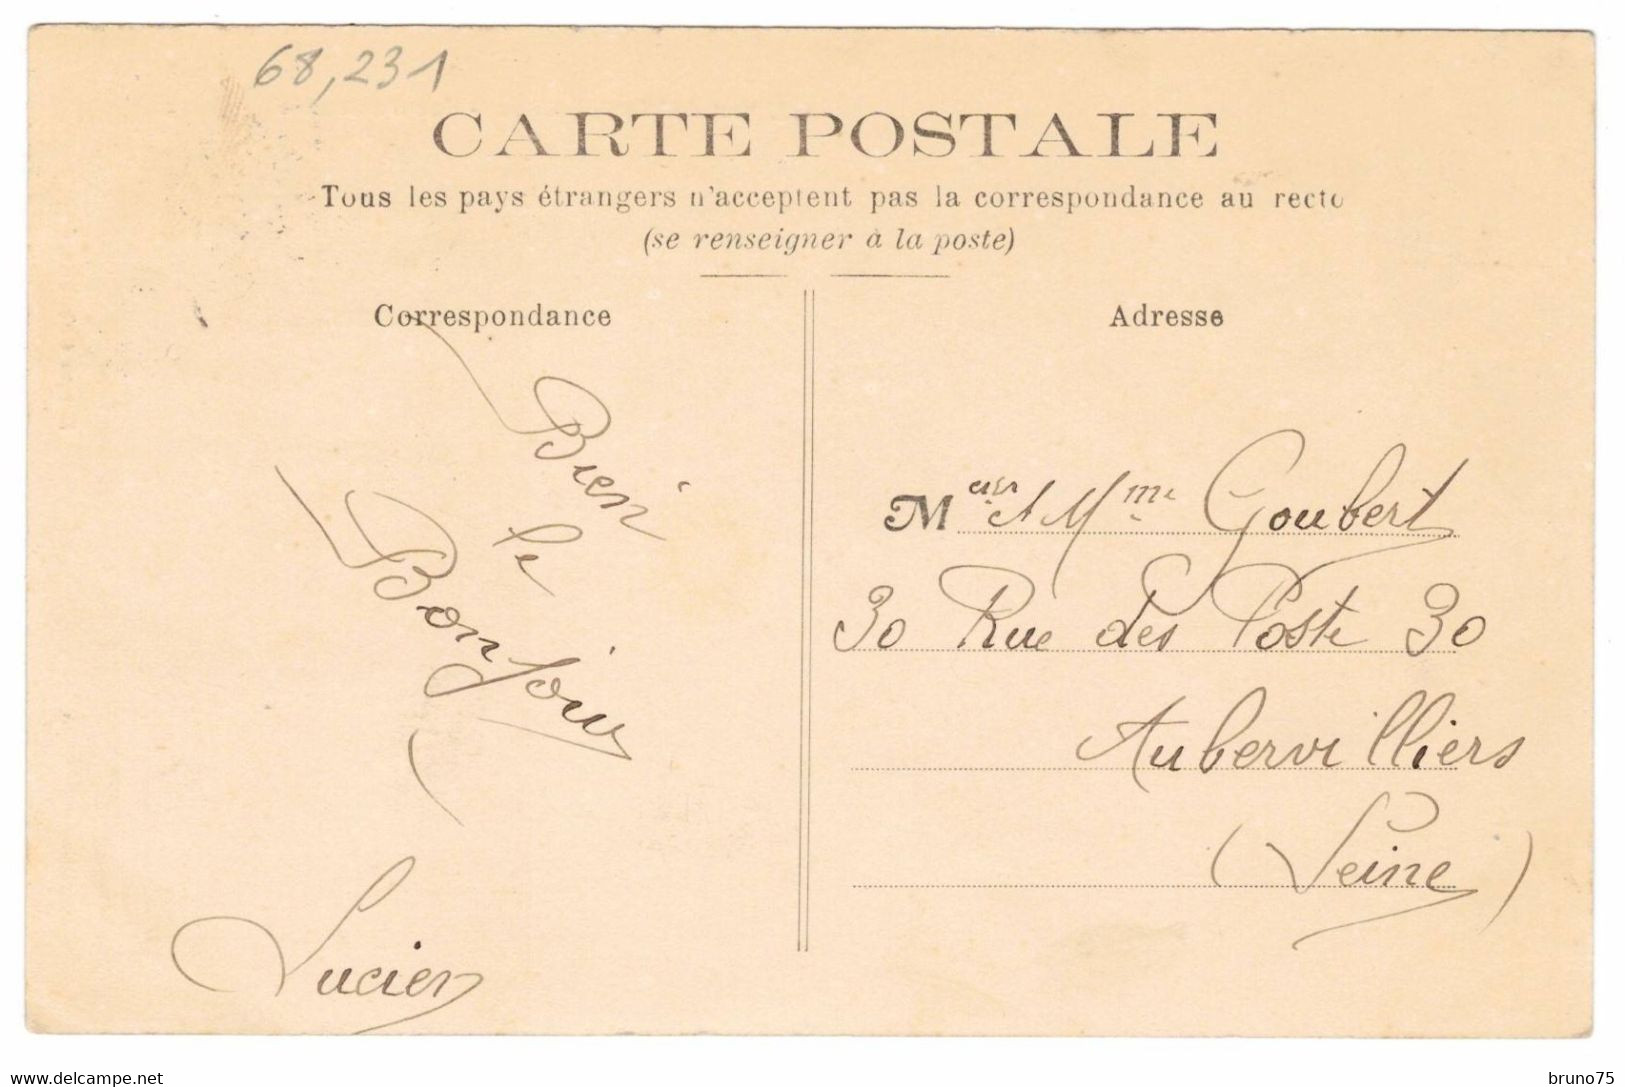 68,231
CARTE POSTALE
Tous les pays étrangers n'acceptent pas la correspondance au recto
(se renseigner à la poste)
Correspondance
Bien
le
Bonjour
Lucien
Adresse
Mcier et Mme Goubert
30 Rue des Poste 30
Aubervilliers
(Seine)
www.delcampe.net
bruno75